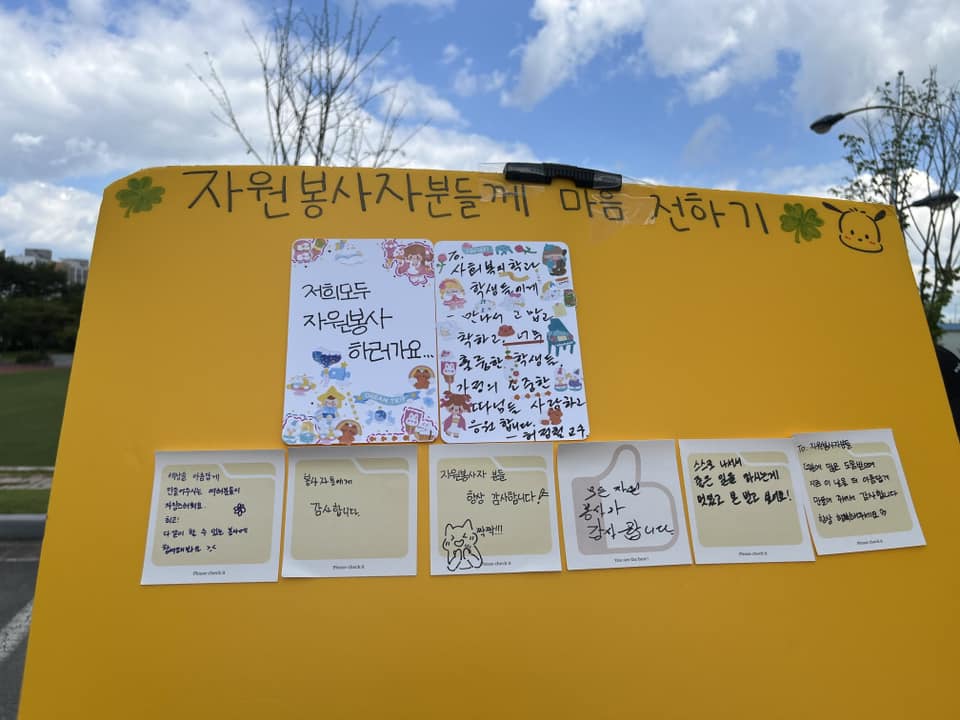 자원봉사자분들께 마음 전하기
저희모두
자원봉사
하러가요...
To.
사회복지학과
학생들에게
만나서 고맙고
착하고, 너무
훌륭한 학생들,
가정의 소중한
따님들 사랑하고
응원합니다.
교수
세상을 아름답게
만들어주시는 여러분들이
자랑스러워요.
최고!
다같이 할 수 있는 봉사에
참여해봐요 >.<
Please check it
봉사자들에게
감사합니다.
Please check it
자원봉사자 분들
항상 감사합니다!
짝짝!!!
Please check it
모든 자원
봉사가
감사합니다.
You are the best!
스스로 나서서
좋은 일을 하시는게
멋있고 본 받고 싶어요!
Please check it
To. 자원봉사자분들
항상 행복하세요
Please check it